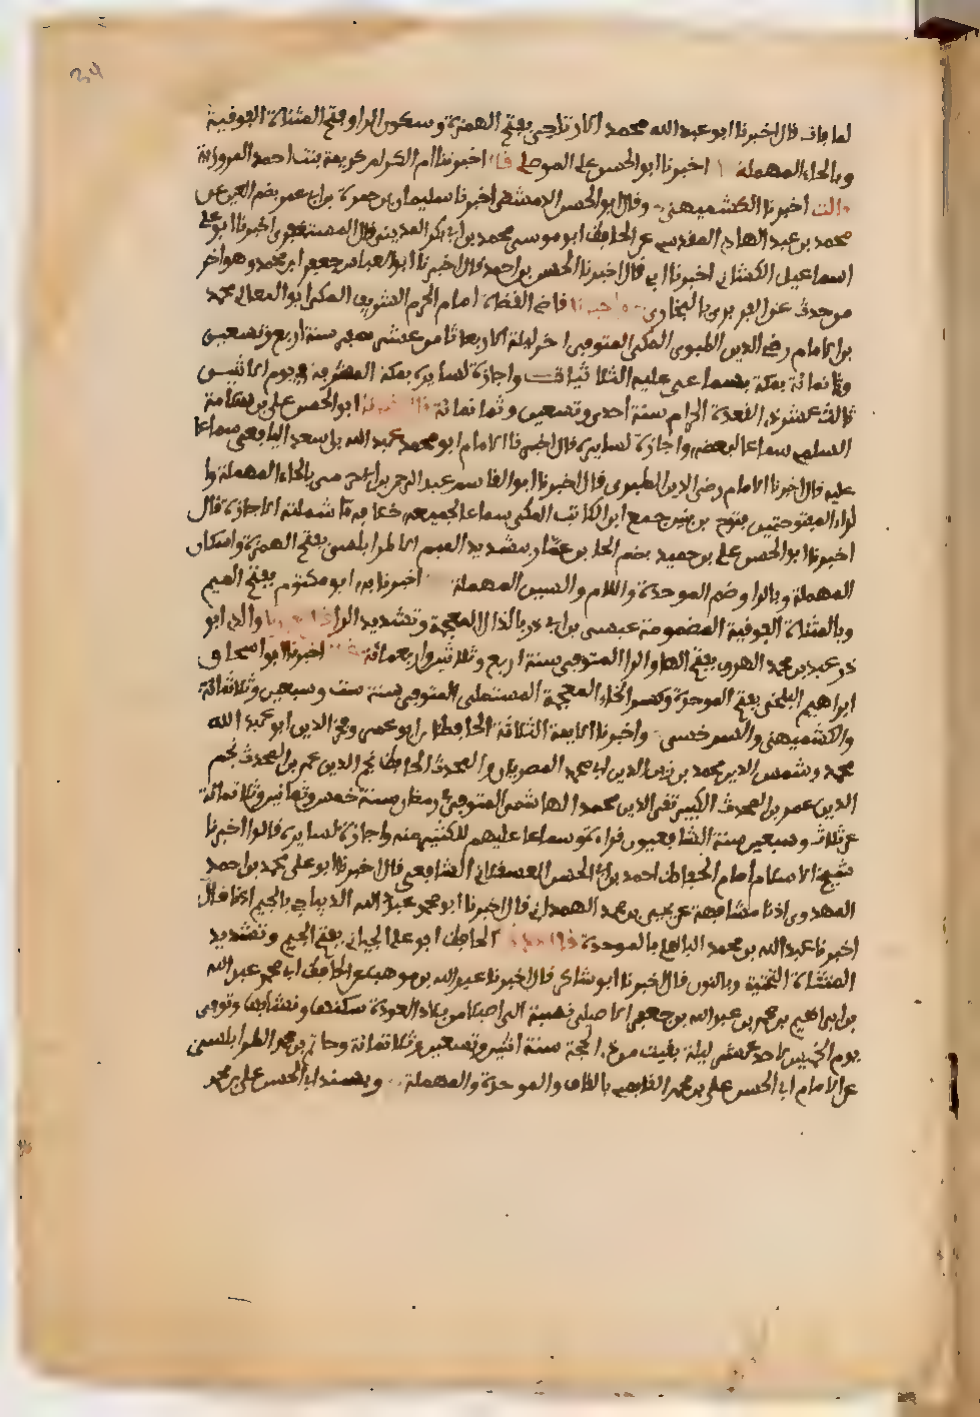 لما فات قال اخبرنا ابو عبد الله محمد الارتاحي بفتح الهمزة وسكون الرا وفتح المثناة الفوقية
وبالحاء المهملة اخبرنا ابو الحسن علي الموصلي اخبرتنا ام الكرام كريمة بنت احمد المروزية
قالت اخبرنا الكشميهني وقال ابو الحسن الدمشقي اخبرنا سليمان بن حمزة بن ابي عمر بضم العين عن
محمد بن عبد الهادي المقدسي عن الحافظ ابو موسى محمد بن ابي بكر المديني قال المستغفري اخبرنا ابو علي
اسماعيل الكشاني اخبرنا ابي قال اخبرنا الحسن بن احمد قال اخبرنا ابو العباس جعفر ابن محمد وهو اخر
من حدث عن الفربري بالبخاري اخبرنا قاضي القضاة امام الحرم الشريف المكي ابو المعالي محمد
بن الامام رضي الدين الطبري المكي المتوفى اخر ليلة الاربعا ثامن عشري صفر سنة اربع وتسعين
وثمانمائة بمكة بسماعي عليه الثلاثيات واجازة لسايره بمكة المشرفة في يوم الاثنين
ثالث عشر ذي القعدة الحرام سنة احدى وتسعين وثمانمائة ابو الحسن علي بن سلامة
السلمي سماعا لبعضه واجازة لسايره قال اخبرنا الامام ابو محمد عبد الله بن اسعد اليافعي سماعا
عليه قال اخبرنا الامام رضي الدين الطبري قال اخبرنا ابو القاسم عبد الرحمن بن ابي حرمي بالحاء المهملة وا
لراء المفتوحتين فتوح بن بنين جمع ابن الكاتب المكي سماعا لجميعه خلا فيه فاشملته الاجازة قال
اخبرنا ابو الحسن علي بن حميد بضم الحا بن عمار بتشديد الميم الاطرابلسي بفتح الهمزة واسكان
المهملة وبالرا وضم الموحدة واللام والسين المهملة اخبرنا به ابو مكتوم بفتح الميم
وبالمثناة الفوقية المضمومة عيسى بن ابي ذر بالذال المعجمة وتشديد الرا والدي ابو
ذر عبد بن محمد الهروي بفتح الها والرا المتوفى سنة اربع وثلاثين واربعمائة اخبرنا ابو اسحاق
ابراهيم البلخي بفتح الموحدة وكسر الخاء المعجمة المستملي المتوفى سنة ست وسبعين وثلاثمائة
والكشميهني والسرخسي واخبرنا الايمة الثلاثة الحافظان ابو عمرو فخر الدين ابو عبد الله
محمد وشمس الدين محمد بن زين الدين ابي محمد المصريان والمحدث الحافظ نجم الدين عمر بن المحدث نجم
الدين عمر بن المحدث الكبير تقي الدين محمد الهاشمي المتوفى في رمضان سنة خمس وثمانين وثلاثمائة
عن ثلاث وسبعين سنة الشافعيون قراءة وسماعا عليهم للكثير منه واجازة لسايره قالوا اخبرنا
شيخ الاسلام امام الحفاظ احمد بن ابي الحسن العسقلاني الشافعي قال اخبرنا ابو علي محمد بن احمد
المهدوي اذنا مشافهة عن يحيى بن محمد الهمداني قال اخبرنا ابو محمد عبد الله الديباجي بالجيم اذنا قال
اخبرنا عبد الله بن محمد الباهلي بالموحدة الحافظ ابو علي الجياني بفتح الجيم وتشديد
المثناة التحتية وبالنون قال اخبرنا ابو شاكر قال اخبرنا عبد الله بن موهب عن الحافظ ابي محمد عبد الله
بن ابراهيم بن محمد بن عبد الله بن جعفر الاصيلي نسبة الى اصيلا من بلاد العدوة سكنها ونشا بها وتوفى
يوم الخميس لاحد عشر ليلة بقيت من ذي الحجة سنة اثنين وتسعين وثلاثمائة وحاتم بن محمد الطرابلسي
عن الامام ابي الحسن علي بن محمد القابسي بالقاف والموحدة والمهملة وبسند ابي الحسن علي بن محمد